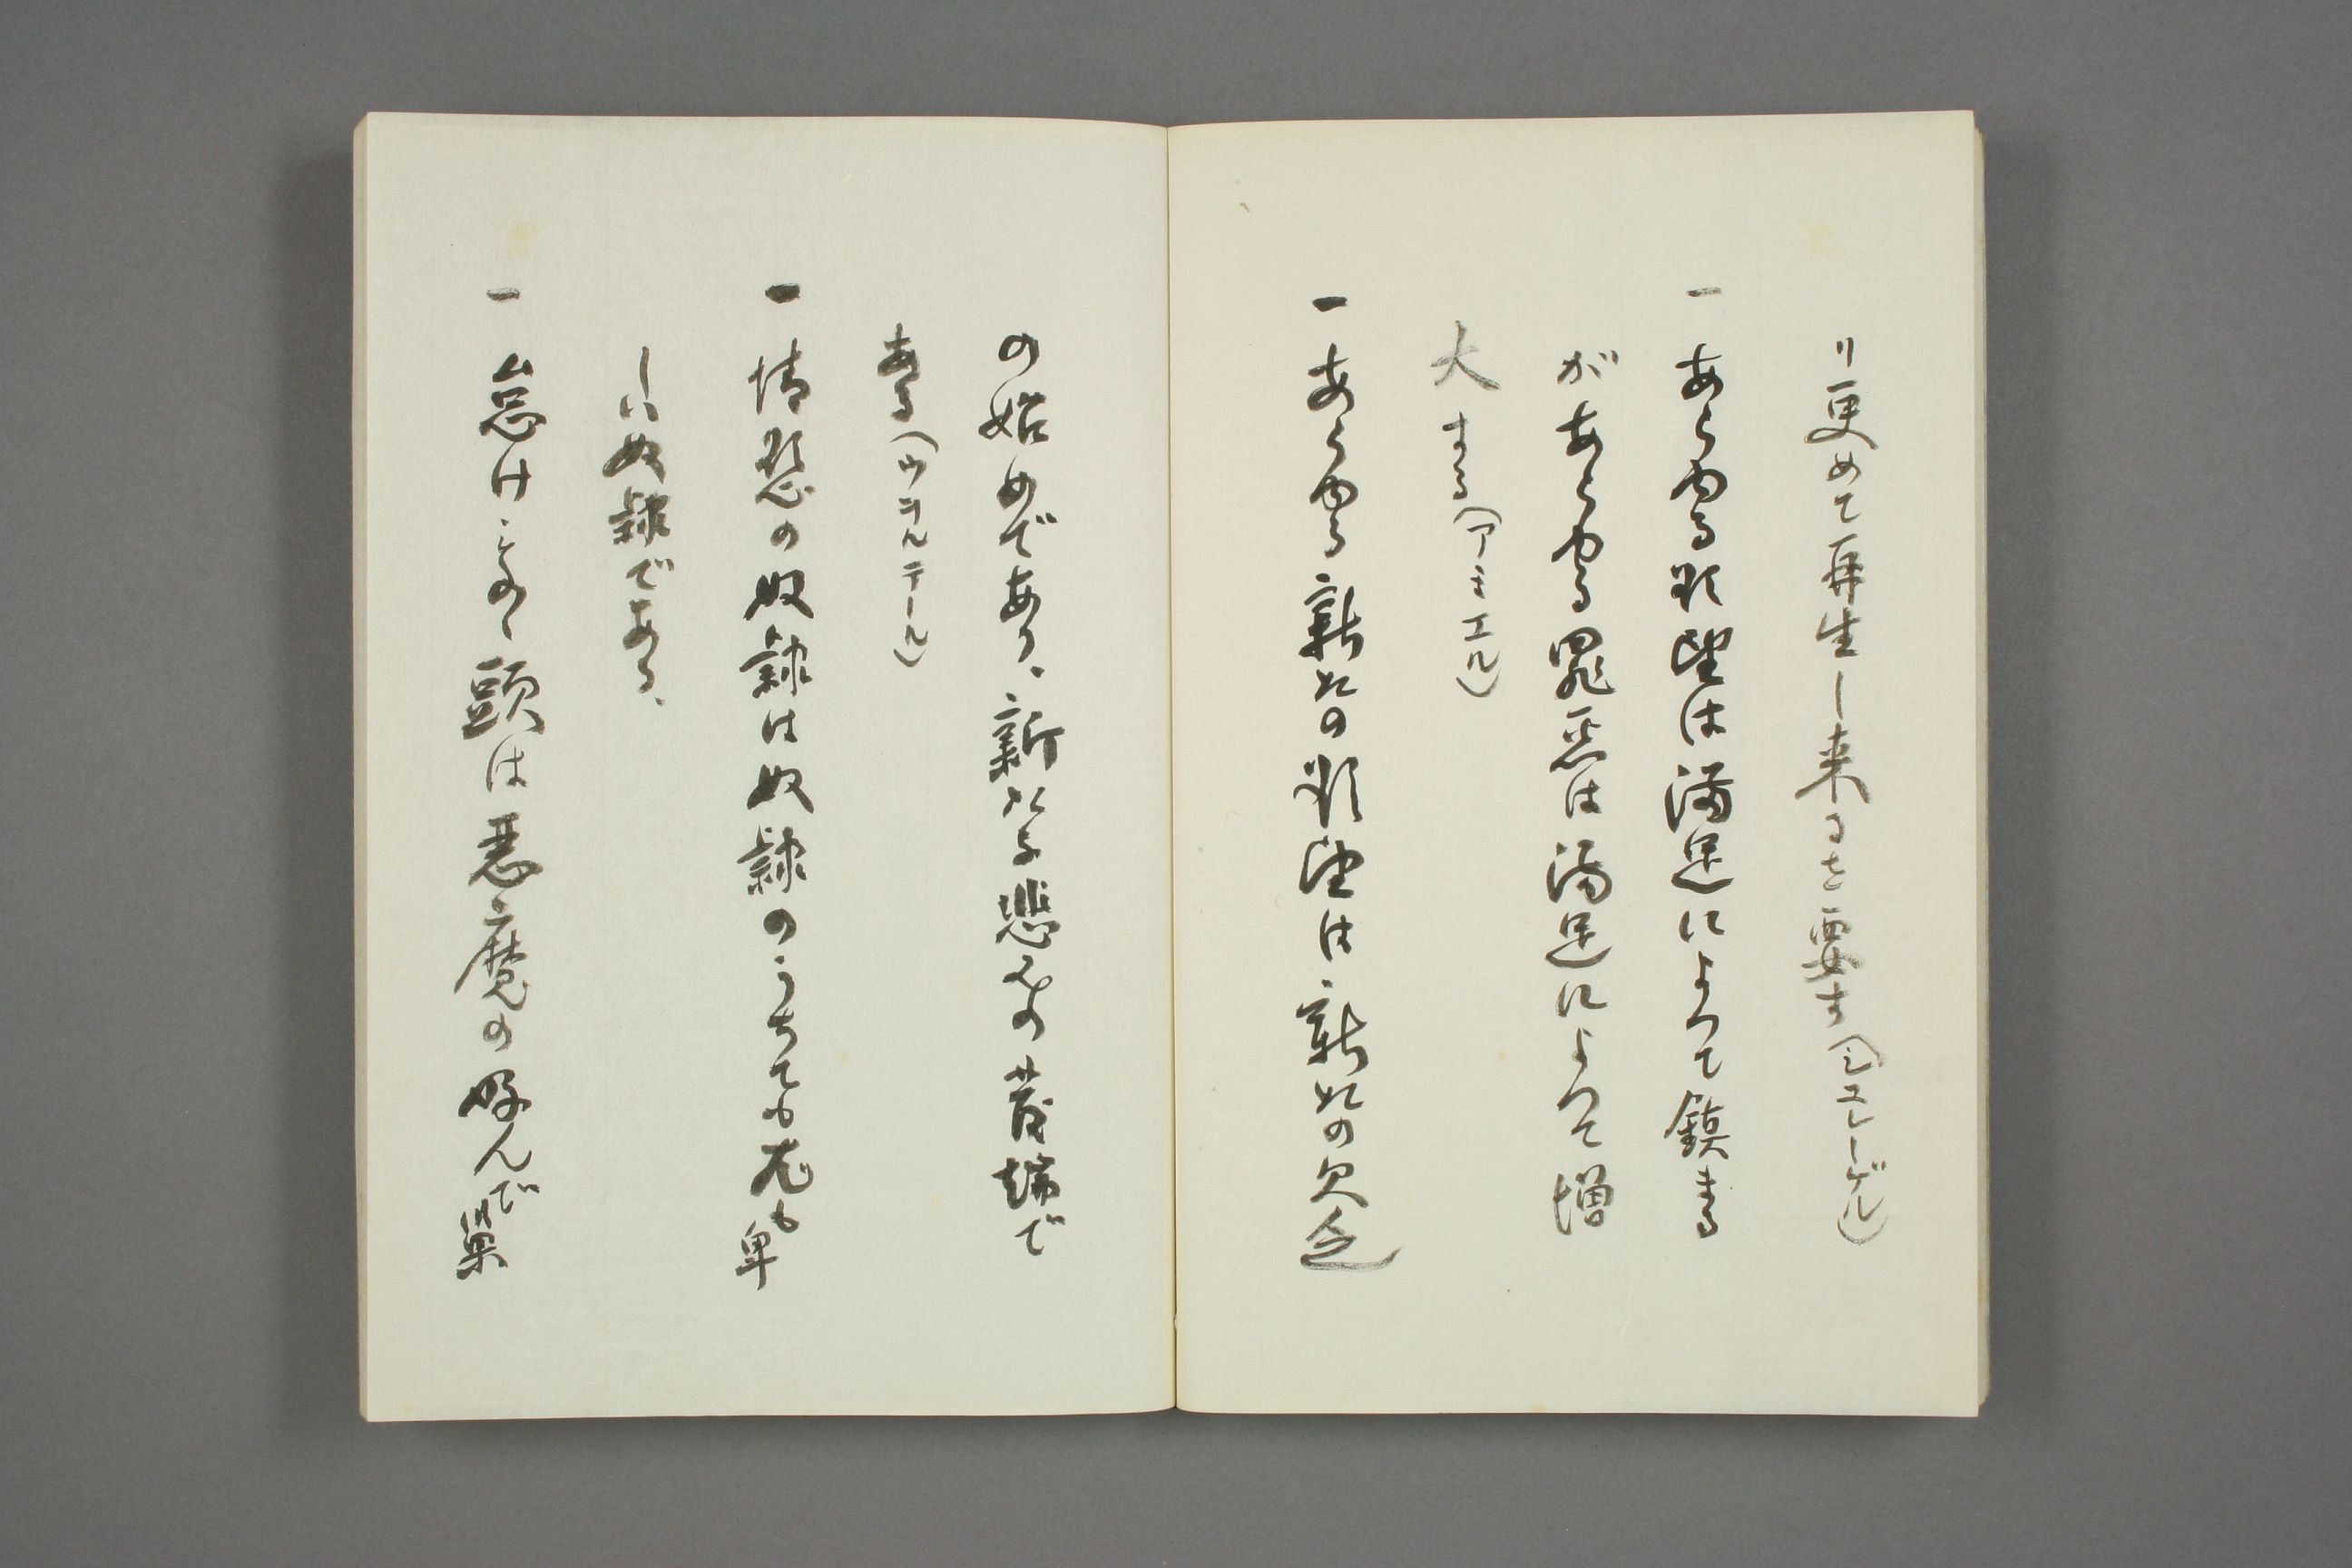 り更めて再生し来るを要す(シュレーゲル)
一 あらゆる願望は満足によつて鎮まる
が あらゆる罪悪は満足によつて増
大する(アミエル)
一 あらゆる新たの願望は新たの欠乏
の始めである、新たな悲みの発端で
ある(ヴォルテール)
一 情慾の奴隷は奴隷のうちでも尤も卑
しい奴隷である、
一 怠けものゝ頭は悪魔の好んで巣